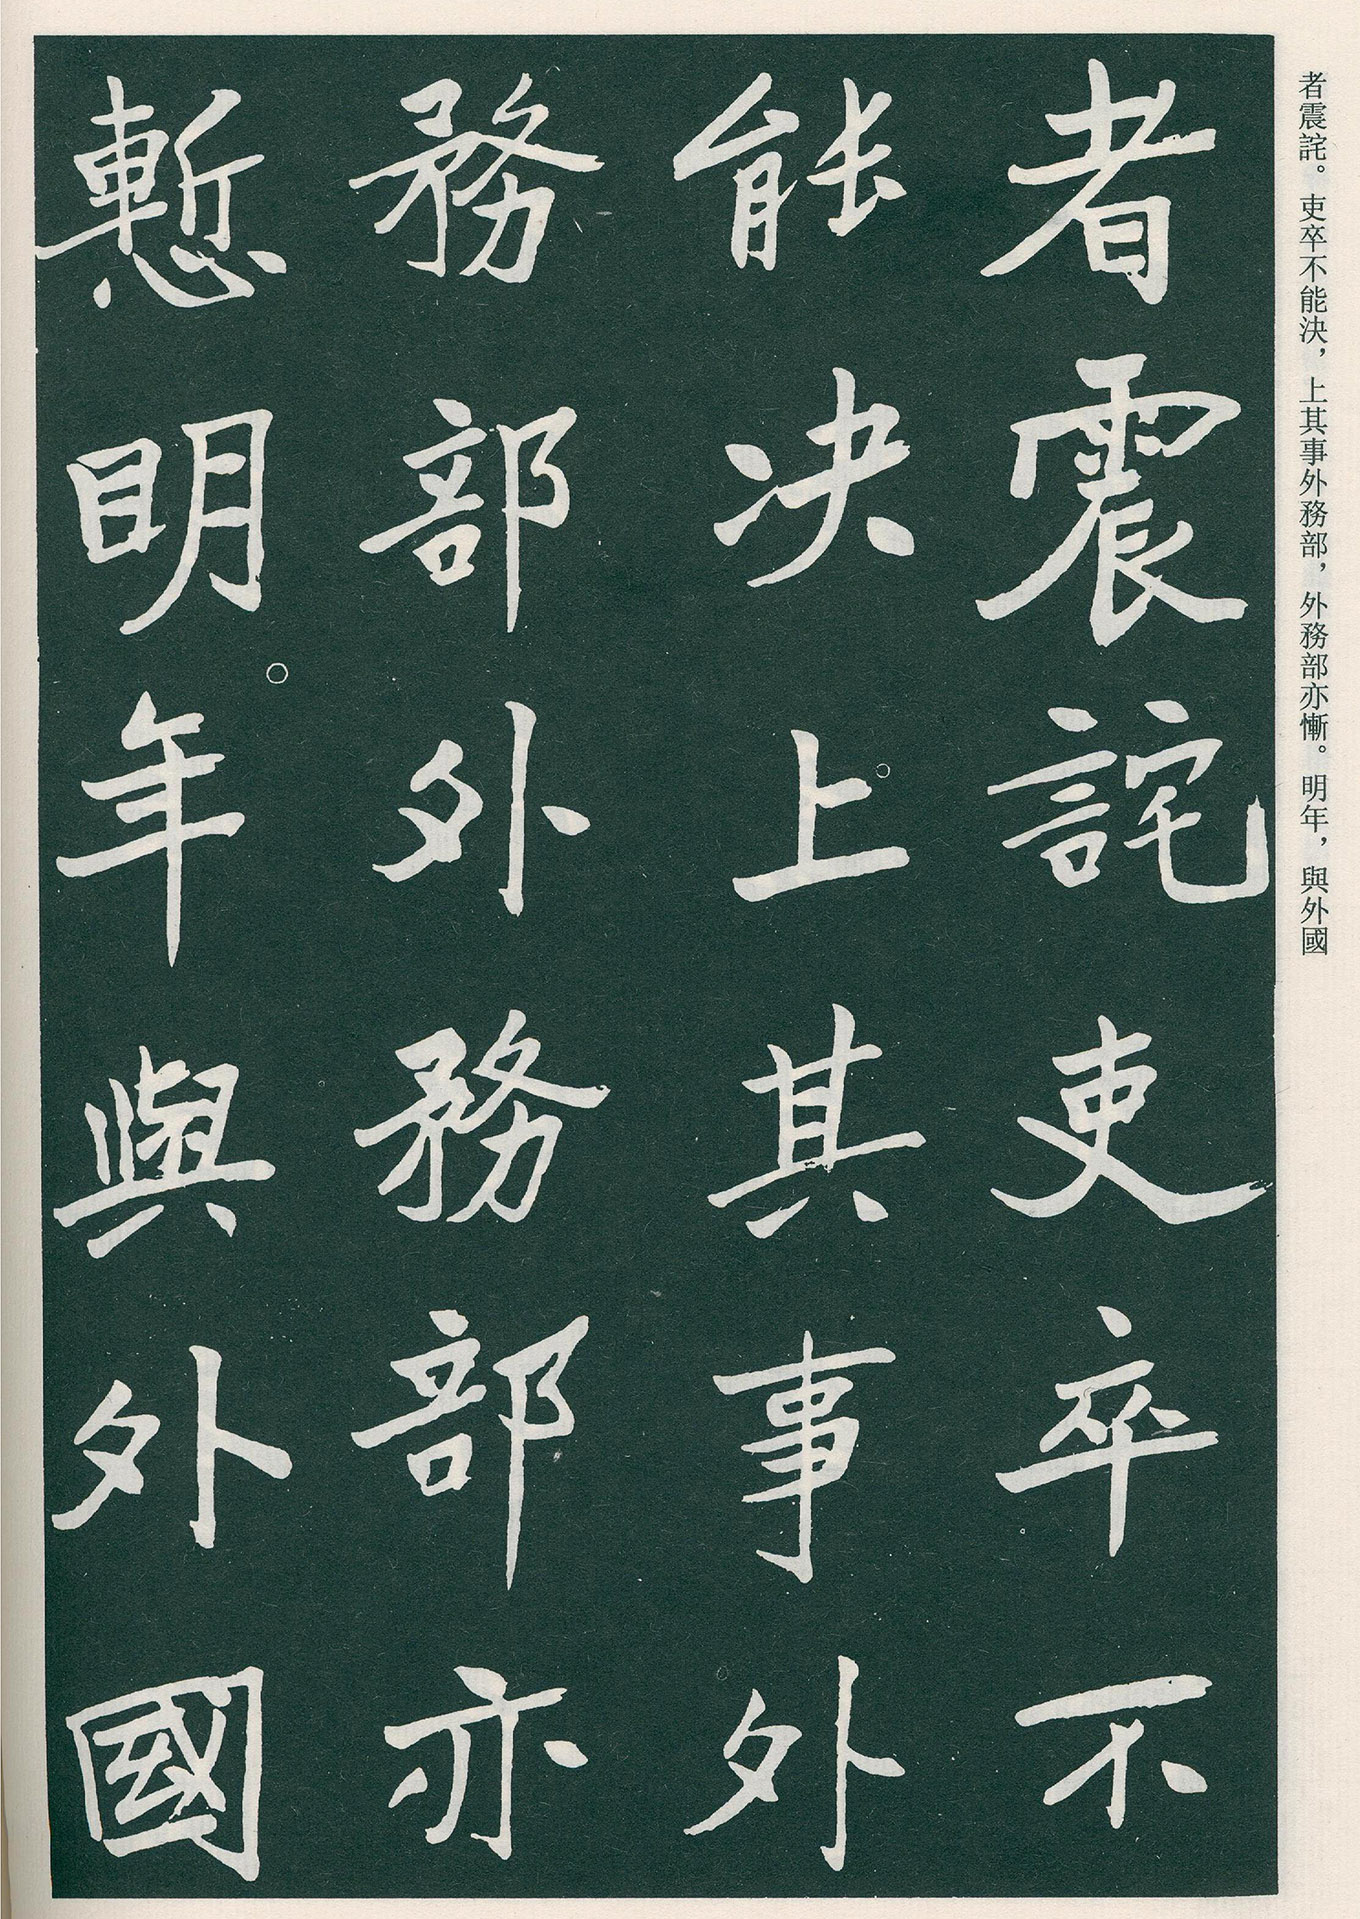 者震詫。吏卒不能決，上其事外務部，外務部亦慚。明年，與外國
者震詫吏卒不
能決上其事外
務部外務部亦
慙明年與外國